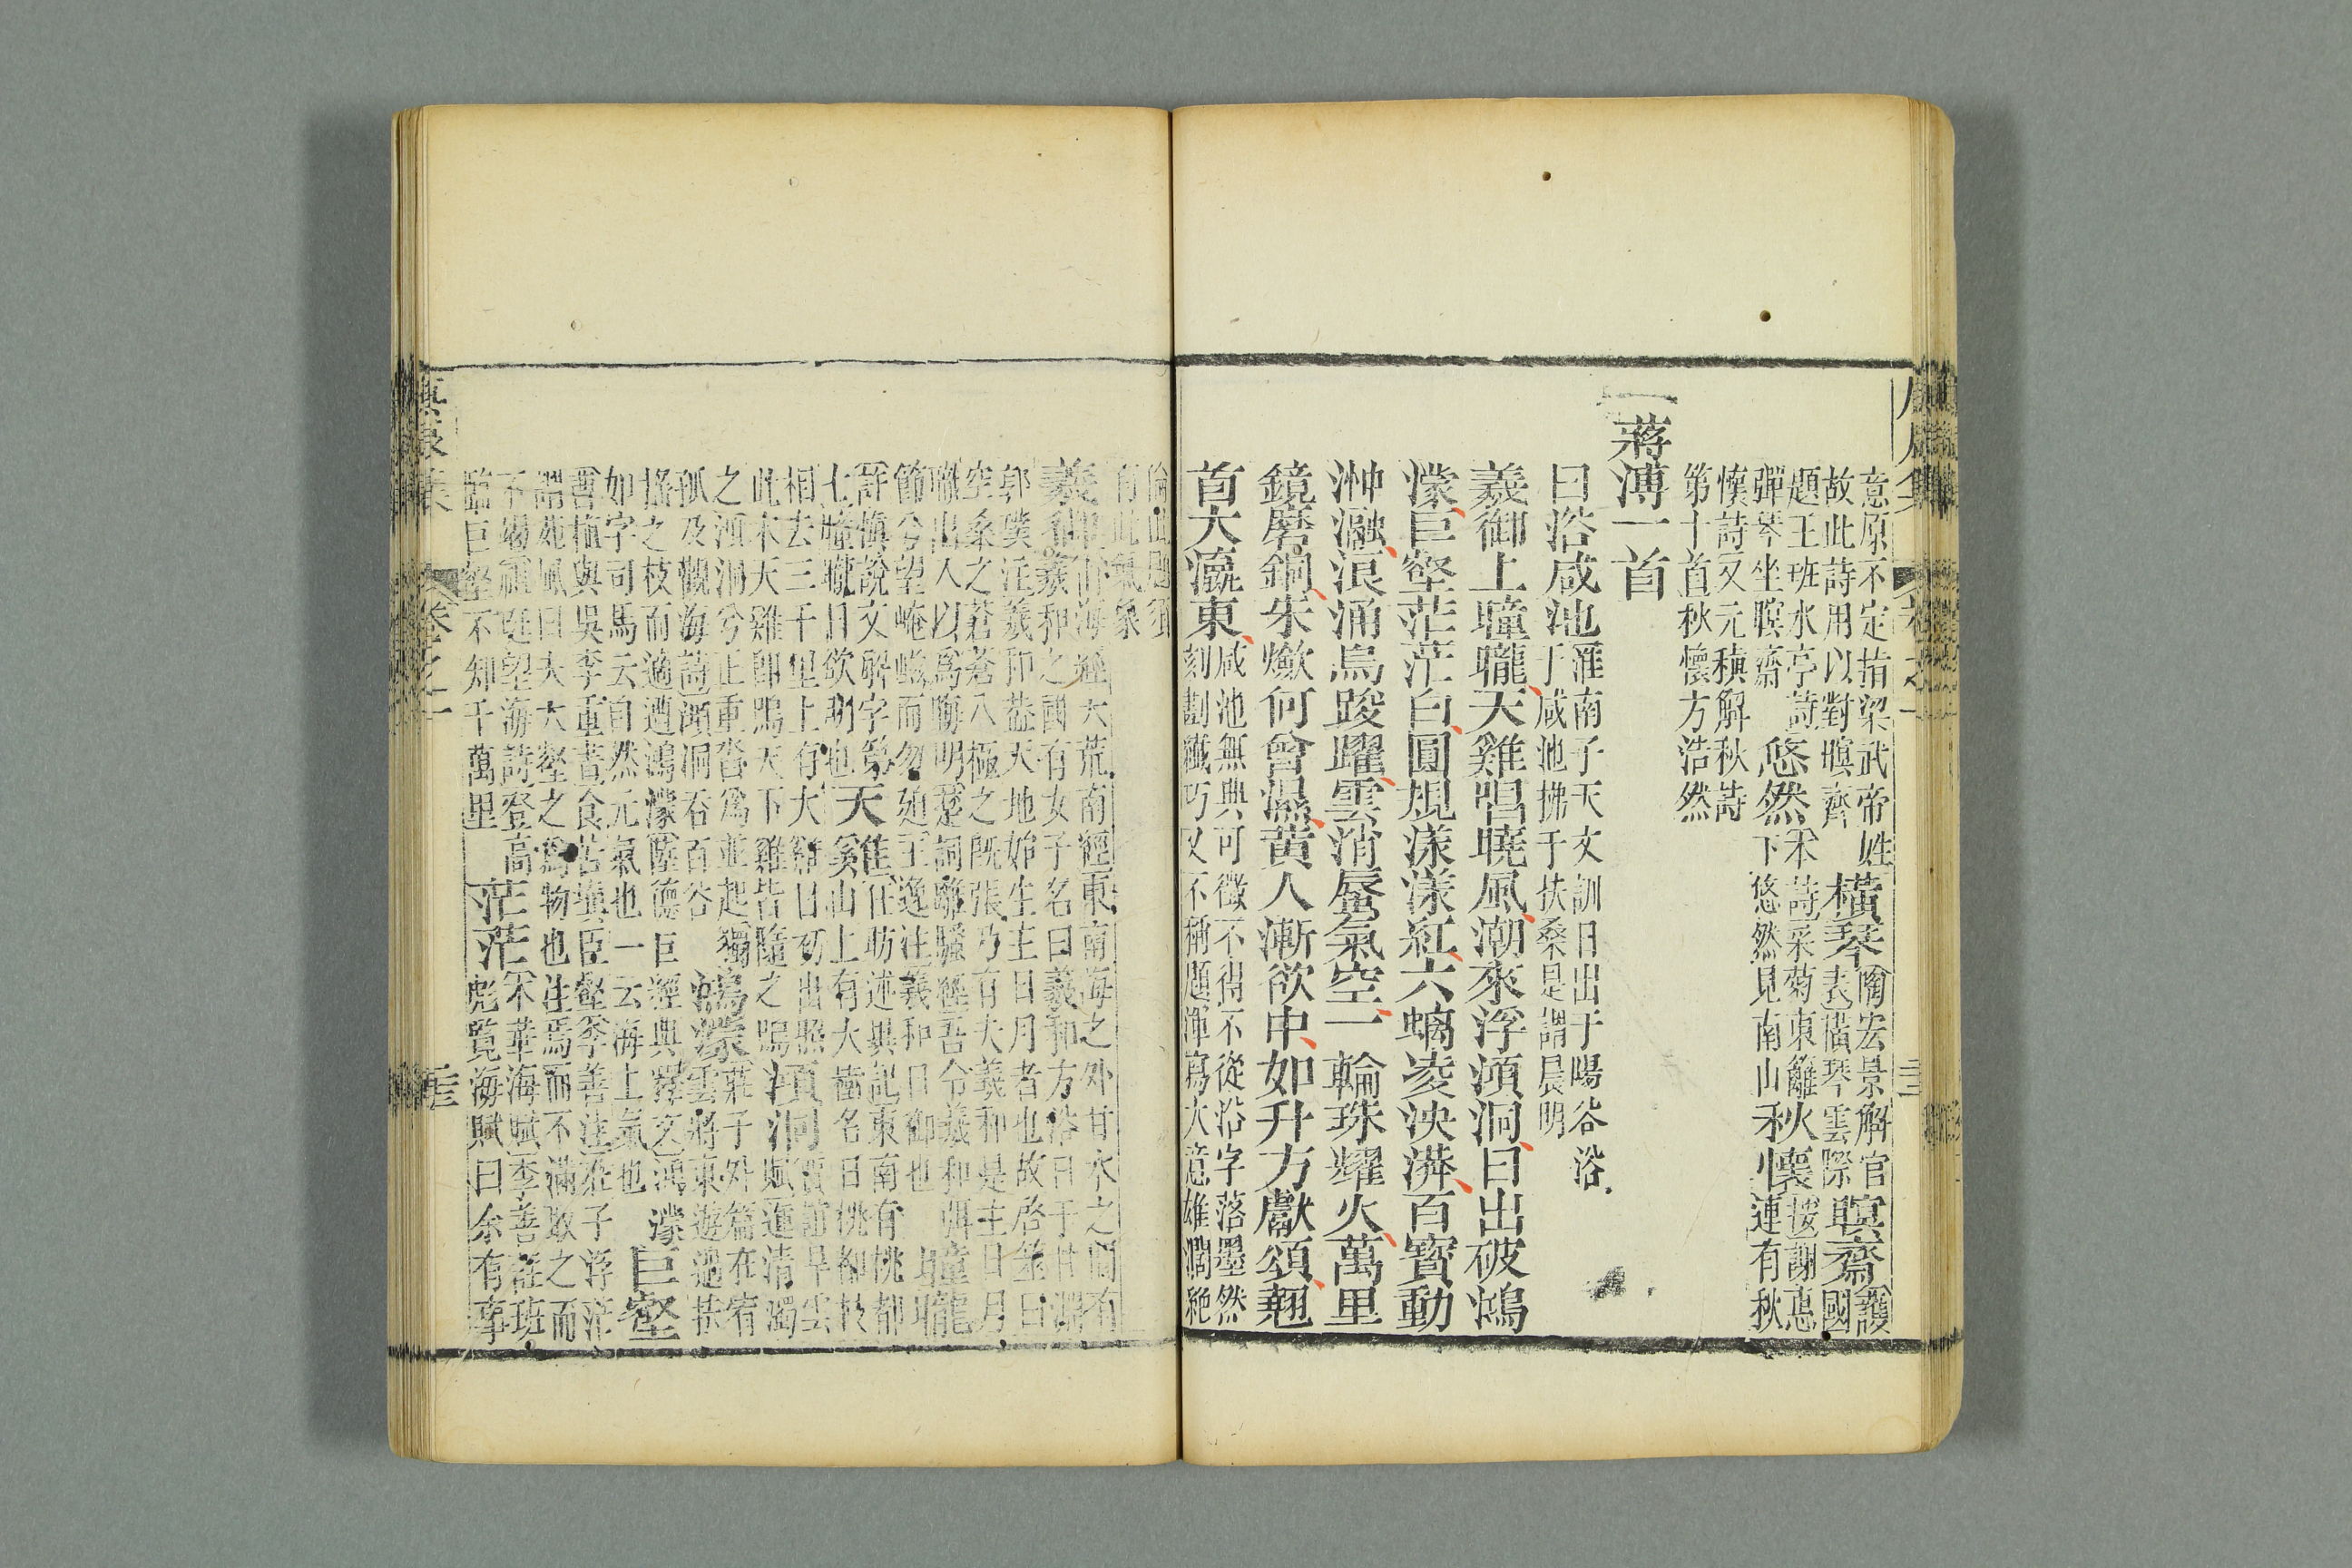 意原不定指梁武帝姓
故此詩用以對暝齋
橫琴
陶宏景解官
表橫琴雲際
暝齋
護國
題王班水亭詩
彈琴坐暝齋
悠然
本詩采菊東籬
下悠然見南山
秋懷
按謝惠
連有秋
懷詩又元稹解秋詩
第十首秋懷方浩然
蔣溥一首
日浴咸池
淮南子天文訓日出于暘谷浴
于咸池拂于扶桑是謂晨明
羲御上曈曨天雞唱曉風潮來浮澒洞日出破鴻
濛巨壑茫茫白圓規漾漾紅六螭凌泱漭百寶動
浺瀜浪涌烏踆躍雲消蜃氣空一輪珠耀火萬里
鏡磨銅朱燄何曾濕黃人漸欲中如升方獻頌翹
首大瀛東
咸池無典可徵不得不從浴字落墨然
刻劃纖巧又不稱題渾寫大意雄濶絕
倫此題須
有此氣象
羲御
山海經大荒南經東南海之外甘水之間有
羲和之國有女子名曰羲和方浴日于甘淵
郭璞注羲和葢天地始生主日月者也故啓筮曰
空桑之蒼蒼八極之既張乃有夫羲和是主日月
職出入以爲晦明楚詞離騷經吾令羲和弭
節兮望崦嵫而勿廹王逸注羲和日御也
曈曨
許愼說文解字第
七曈曨日欲明也
天雞
任昉述異記東南有桃都
山上有大樹名曰桃都枝
相去三千里上有大
此木天雞即鳴天下雞皆隨之鳴
澒洞
賈誼旱雲
賦運清濁
之澒洞兮正重沓爲並起獨
孤及觀海詩澒洞吞百谷
鴻濛
莊子外篇在宥
雲將東遊過扶
搖之枝而適遭鴻濛陸德
如字司馬云自然元氣也一云海上氣也
巨壑
不竭祖庭望海詩登高
臨巨壑不知千萬里
茫茫
木華海賦李善註班
彪覽海賦曰余有事
卷之一